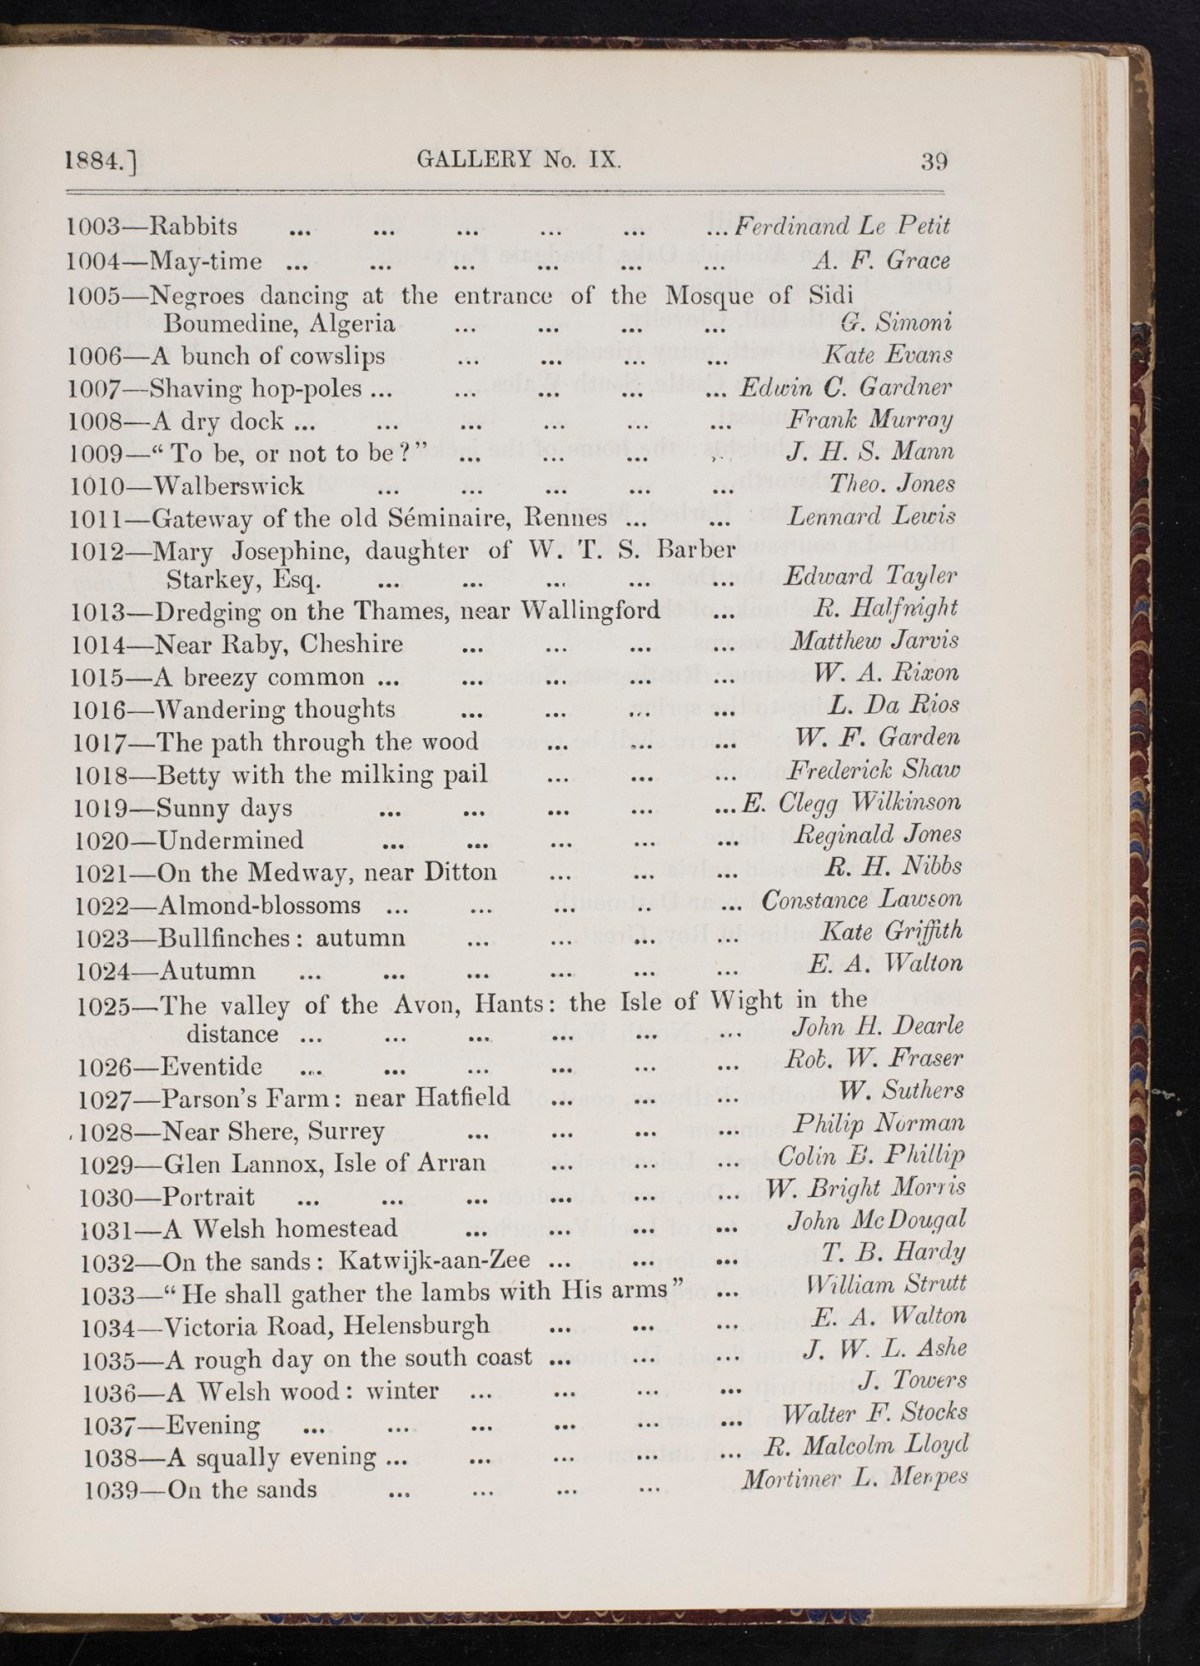 1884.] GALLERY No. IX. 39
1003—Rabbits ... ... ... ... ... ... Ferdinand Le Petit
1004—May-time ... ... ... ... ... ... A. F. Grace
1005—Negroes dancing at the entrance of the Mosque of Sidi
Boumedine, Algeria ... ... ... ... G. Simoni
1006—A bunch of cowslips ... ... ... ... Kate Evans
1007—Shaving hop-poles ... ... ... ... ... Edwin C. Gardner
1008—A dry dock ... ... ... ... ... ... Frank Murray
1009—“To be, or not to be?” ... ... ... ... J. H. S. Mann
1010—Walberswick ... ... ... ... ... Theo. Jones
1011—Gateway of the old Séminaire, Rennes ... ... Lennard Lewis
1012—Mary Josephine, daughter of W. T. S. Barber
Starkey, Esq. ... ... ... ... ... Edward Tayler
1013—Dredging on the Thames, near Wallingford ... R. Halfnight
1014—Near Raby, Cheshire ... ... ... ... Matthew Jarvis
1015—A breezy common ... ... ... ... ... W. A. Rixon
1016—Wandering thoughts ... ... ... ... L. Da Rios
1017—The path through the wood ... ... ... W. F. Garden
1018—Betty with the milking pail ... ... ... Frederick Shaw
1019—Sunny days ... ... ... ... ... E. Clegg Wilkinson
1020—Undermined ... ... ... ... ... Reginald Jones
1021—On the Medway, near Ditton ... ... ... R. H. Nibbs
1022—Almond-blossoms ... ... ... .. ... Constance Lawson
1023—Bullfinches: autumn ... ... ... ... Kate Griffith
1024—Autumn ... ... ... ... ... ... E. A. Walton
1025—The valley of the Avon, Hants: the Isle of Wight in the
distance ... ... ... ... ... ... John H. Dearle
1026—Eventide ... ... ... ... ... ... Rob. W. Fraser
1027—Parson's Farm: near Hatfield ... ... ... W. Suthers
1028—Near Shere, Surrey ... ... ... ... Philip Norman
1029—Glen Lannox, Isle of Arran ... ... ... Colin B. Phillip
1030—Portrait ... ... ... ... ... ... W. Bright Morris
1031—A Welsh homestead ... ... ... ... John McDougal
1032—On the sands: Katwijk-aan-Zee ... ... ... T. B. Hardy
1033—“He shall gather the lambs with His arms” ... William Strutt
1034—Victoria Road, Helensburgh ... ... ... E. A. Walton
1035—A rough day on the south coast ... ... ... J. W. L. Ashe
1036—A Welsh wood: winter ... ... ... ... J. Towers
1037—Evening ... ... ... ... ... ... Walter F. Stocks
1038—A squally evening ... ... ... ... ... R. Malcolm Lloyd
1039—On the sands ... ... ... ... Mortimer L. Menpes